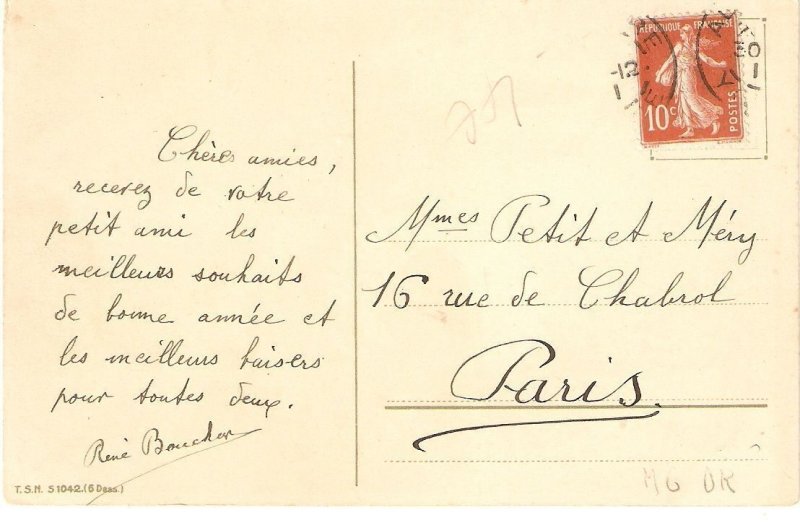 Chères amies,
recevez de votre
petit ami les
meilleurs souhaits
de bonne année et
les meilleurs baisers
pour toutes deux.
René Boucher
T.S.N. S1042.(6 Dess.)
RÉPUBLIQUE FRANÇAISE
10c
POSTES
Mmes Petit et Méry
16 rue de Chabrol
Paris.
MG DR